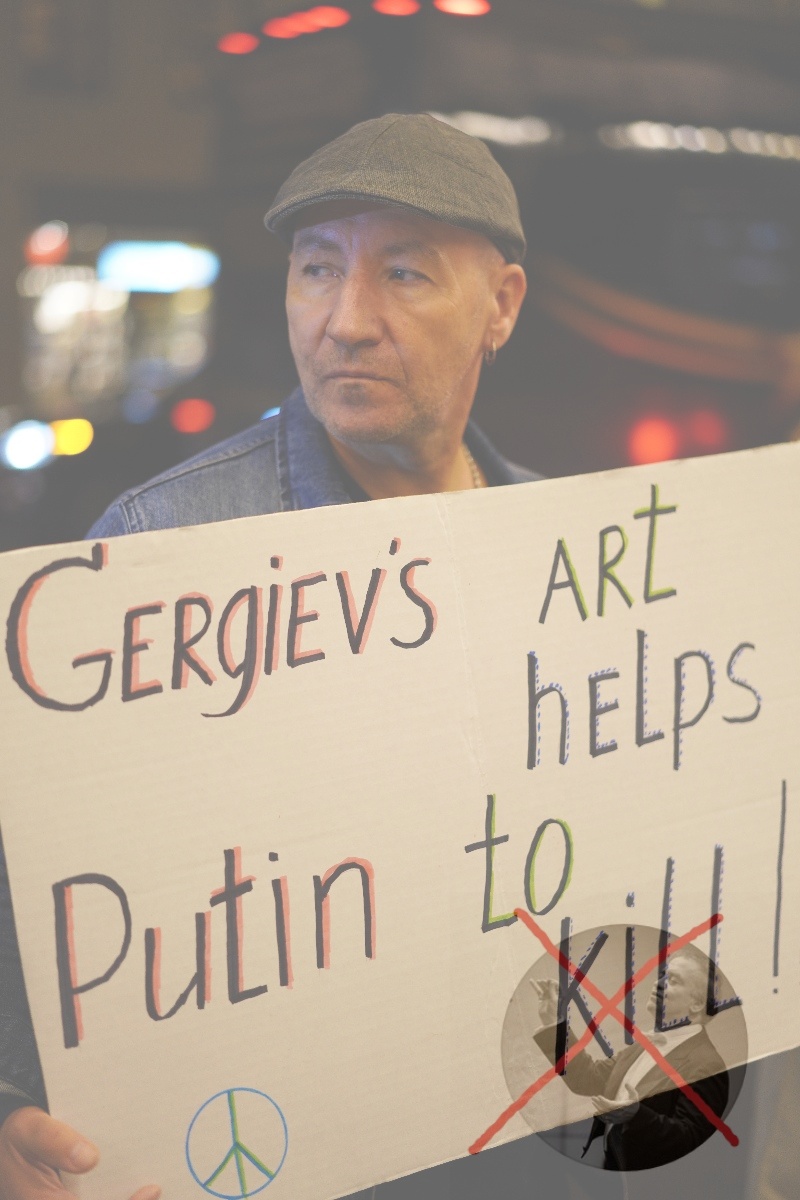 GERgiEV'S
ARt
hELpS
Putin
to
kiLL!